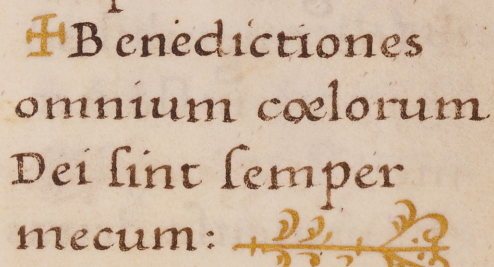 ✠Benedictiones
omnium cœlorum
Dei ſint ſemper
mecum: